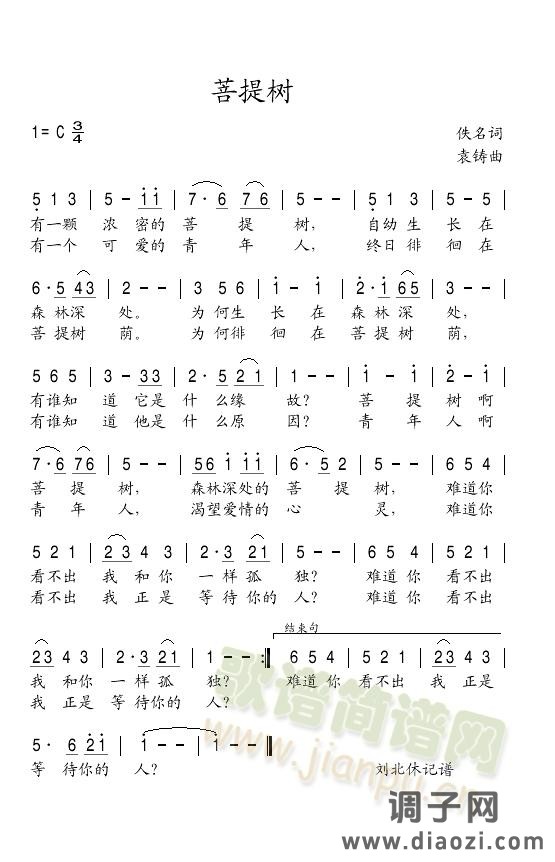 菩提树
1= C 3/4
佚名词
袁铸曲
5 1 3 | 5 - 1 1 | 7· 6 7 6 | 5 - - | 5 1 3 | 5 - 5 |
有一颗 浓密的菩 提 树, 自幼生 长在
有一个 可爱的青 年 人, 终日徘 徊在
6· 5 4 3 | 2 - - | 3 5 6 | 1 - 1 | 2· 1 6 5 | 1 - - |
森林深 处。 为何生 长在 森林深 处,
菩提树 荫。 为何徘 徊在 菩提树 荫,
5 6 5 | 3 - 3 3 | 2· 5 2 1 | 1 - - | 1 - 1 | 2 - 1 |
有谁知 道它是 什么缘 故? 菩 提 树啊
有谁知 道他是 什么原 因? 青 年 人啊
7· 6 7 6 | 5 - - | 5 6 1 1 1 | 6· 5 2 | 5 - - | 6 5 4 |
菩 提 树, 森林深处的 菩 提 树, 难道你
青 年 人, 渴望爱情的 心 灵, 难道你
5 2 1 | 2 3 4 3 | 2· 3 2 1 | 1 - - | 6 5 4 | 5 2 1 |
看不出 我 和你 一样孤 独? 难道你 看不出
看不出 我 正是 等待你的 人? 难道你 看不出
结束句
2 3 4 3 | 2· 3 2 1 | 1 - - :‖ 6 5 4 | 5 2 1 | 2 3 4 3 |
我 和你 一样孤 独? 难道你 看不出 我 正是
我 正是 等待你的 人?
5· 6 2 1 | 1 - - | 1 - - ‖
等 待你的 人?
刘北休记谱
歌谱简谱网
www.jianpu.cn
调子网
www.diaozi.com